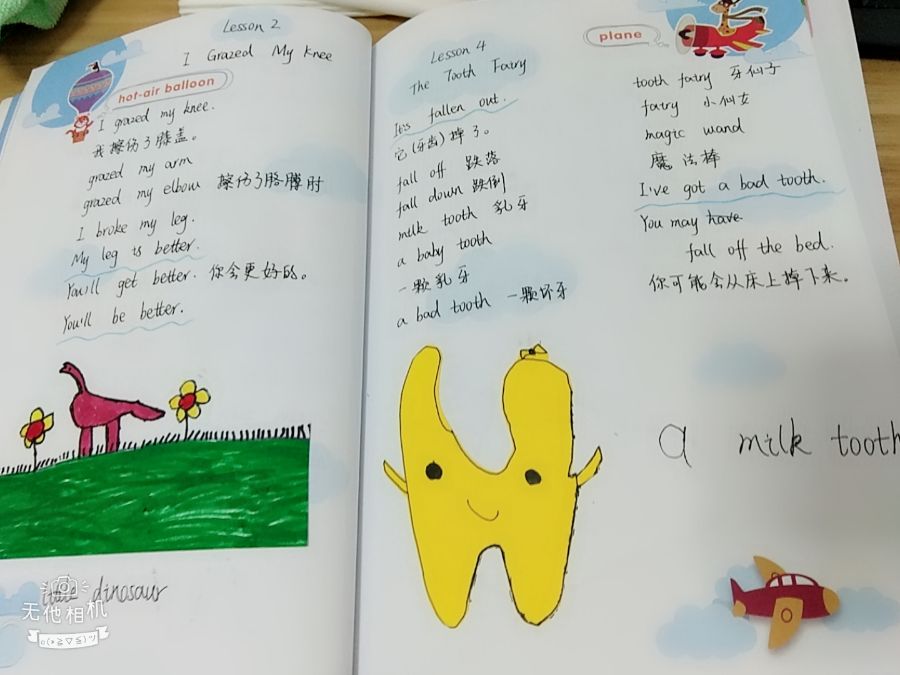 Lesson 2
I Grazed My Knee
hot-air balloon
I grazed my knee.
我擦伤了膝盖。
grazed my arm
grazed my elbow 擦伤了胳膊肘
I broke my leg.
My leg is better.
You'll get better. 你会更好的。
You'll be better.
little dinosaur
无他相机
Lesson 4
The Tooth Fairy
It's fallen out.
它(牙齿)掉了。
fall off 跌落
fall down 跌倒
milk tooth 乳牙
a baby tooth
一颗乳牙
a bad tooth 一颗坏牙
plane
tooth fairy 牙仙子
fairy 小仙女
magic wand
魔法棒
I've got a bad tooth.
You may have
fall off the bed.
你可能会从床上掉下来。
a milk tooth